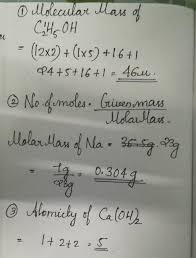 ① Molecular Mass of
C₂H₅OH
= (12x2) + (1x5) + 16 + 1
24 + 5 + 16 + 1 = 46u.
② No. of moles. Given mass
Molar Mass.
Molar Mass of Na =
= 1g
23g = 0.304g
③ Atomicity of Ca(OH)₂
= 1 + 2 + 2 = 5